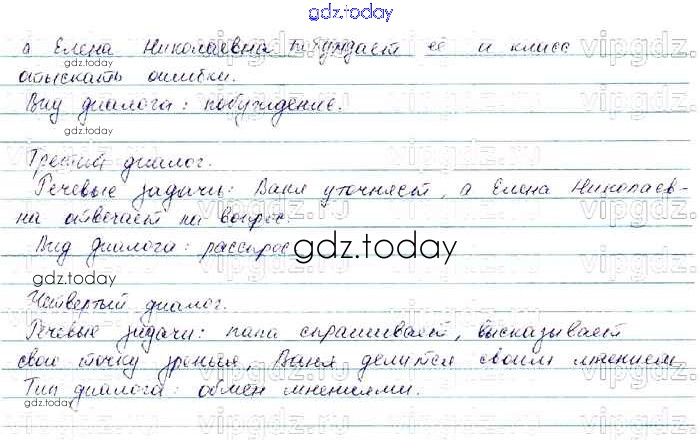 gdz.today
а Елена Николаевна побуждает её и класс
отыскать ошибки.
Вид диалога: побуждение.
gdz.today
Третий диалог.
Речевые задачи: Ваня уточняет, а Елена Николаев-
на отвечает на вопрос.
Вид диалога: расспрос
gdz.today
gdz.today
Четвертый диалог.
Речевые задачи: папа спрашивает, высказывает
свою точку зрения, Ваня делится своим мнением
Тип диалога: обмен мнениями.
gdz.today